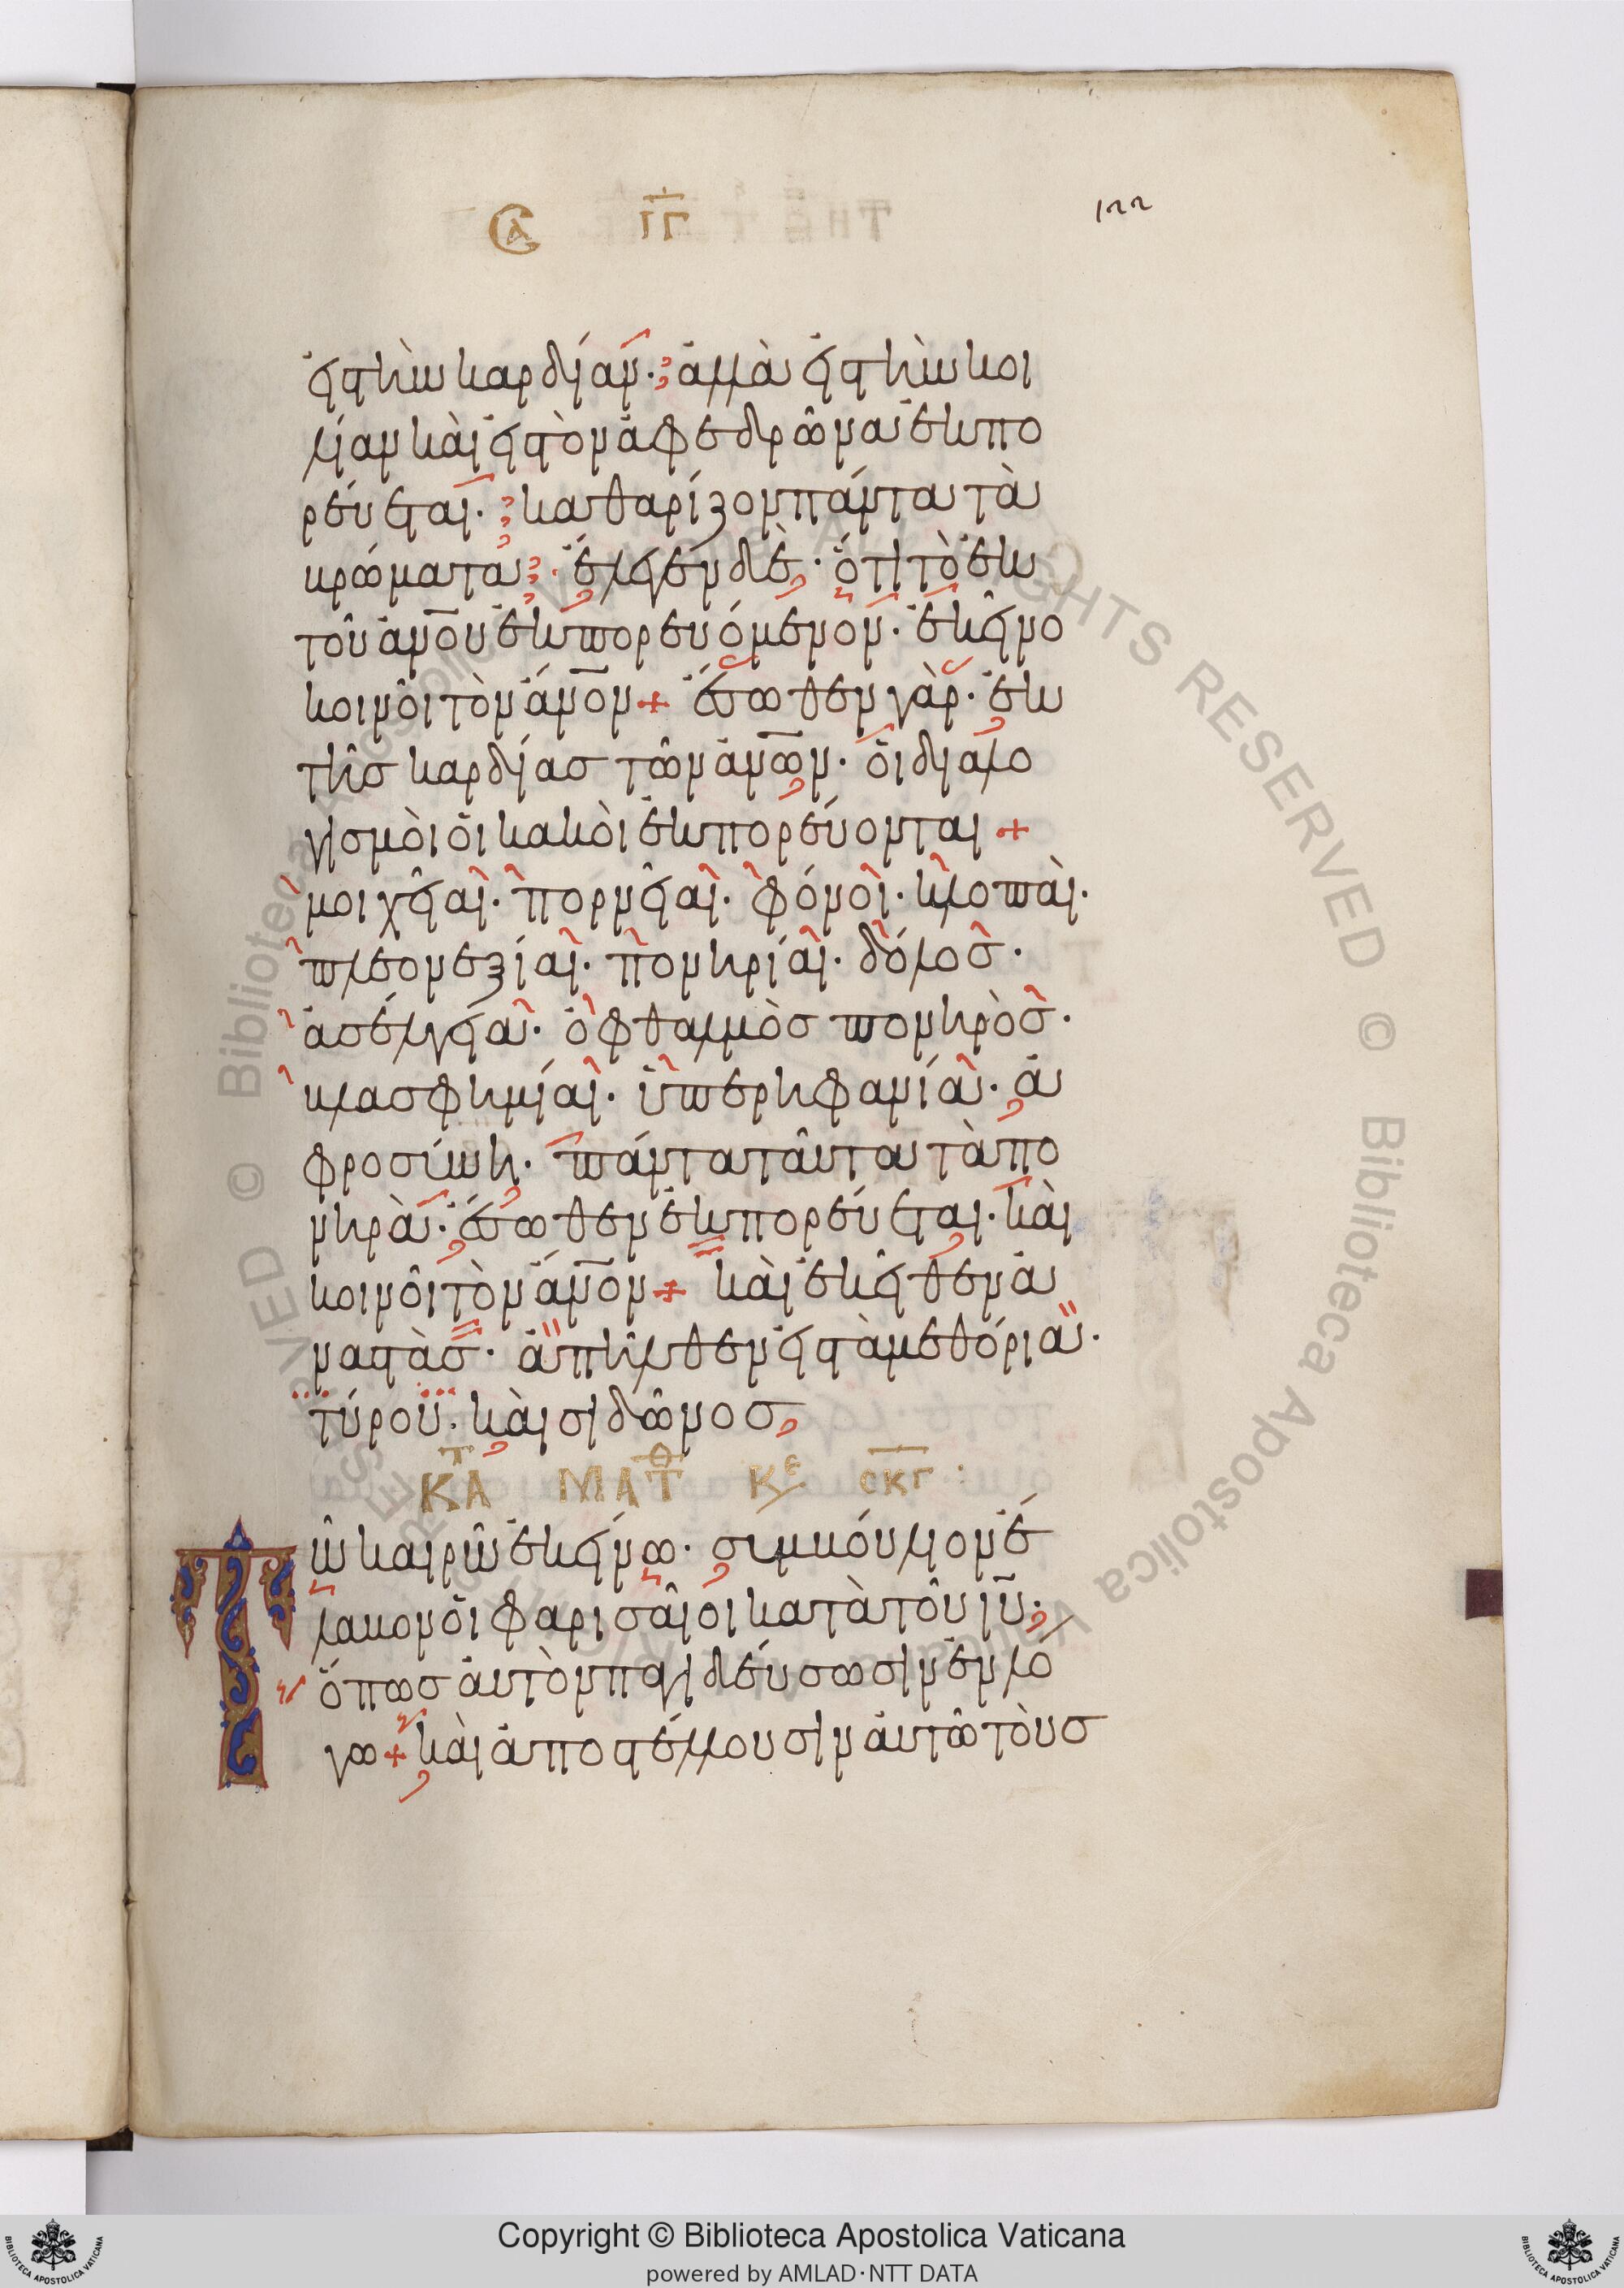 122
ΣΑ ΙΓ
εἰς τὴν καρδίαν· ἀλλὰ εἰς τὴν κοι
λίαν καὶ εἰς τὸν ἀφεδρῶνα ἐκπο
ρεύεται· καθαρίζον πάντα τὰ
βρώματα· ἔλεγεν δὲ· ὅτι τὸ ἐκ
τοῦ ἀνου ἐκπορευόμενον· ἐκεῖνο
κοινοῖ τὸν ἀνον + ἔσωθεν γὰρ· ἐκ
τῆς καρδίας τῶν ἀνων· οἱ διαλο
γισμοὶ οἱ κακοὶ ἐκπορεύονται +
μοιχεῖαι· πορνεῖαι· φόνοι· κλοπαὶ·
πλεονεξίαι· πονηρίαι· δόλος·
ἀσέλγεια· ὀφθαλμὸς πονηρὸς·
βλασφημίαι· ὑπερηφανία· ἀ
φροσύνη· πάντα ταῦτα τὰ πο
νηρὰ· ἔσωθεν ἐκπορεύεται· καὶ
κοινοῖ τὸν ἀνον + καὶ ἐκεῖθεν ἀ
ναστὰς· ἀπῆλθεν εἰς τὰ μεθόρια·
τύρου· καὶ σιδῶνος
ΚΑΤ ΜΑΤΘ ΚΕ ΣΚΓ :
Τῶ καιρῶ ἐκείνω· συμβούλιον ἔ
λαβον οἱ φαρισαῖοι κατὰ τοῦ ιυ·
ὅπως αὐτὸν παγιδεύσωσιν ἐν λό
γω + καὶ ἀποστέλλουσιν αὐτῶ τοὺς
Copyright © Biblioteca Apostolica Vaticana
powered by AMLAD·NTT DATA